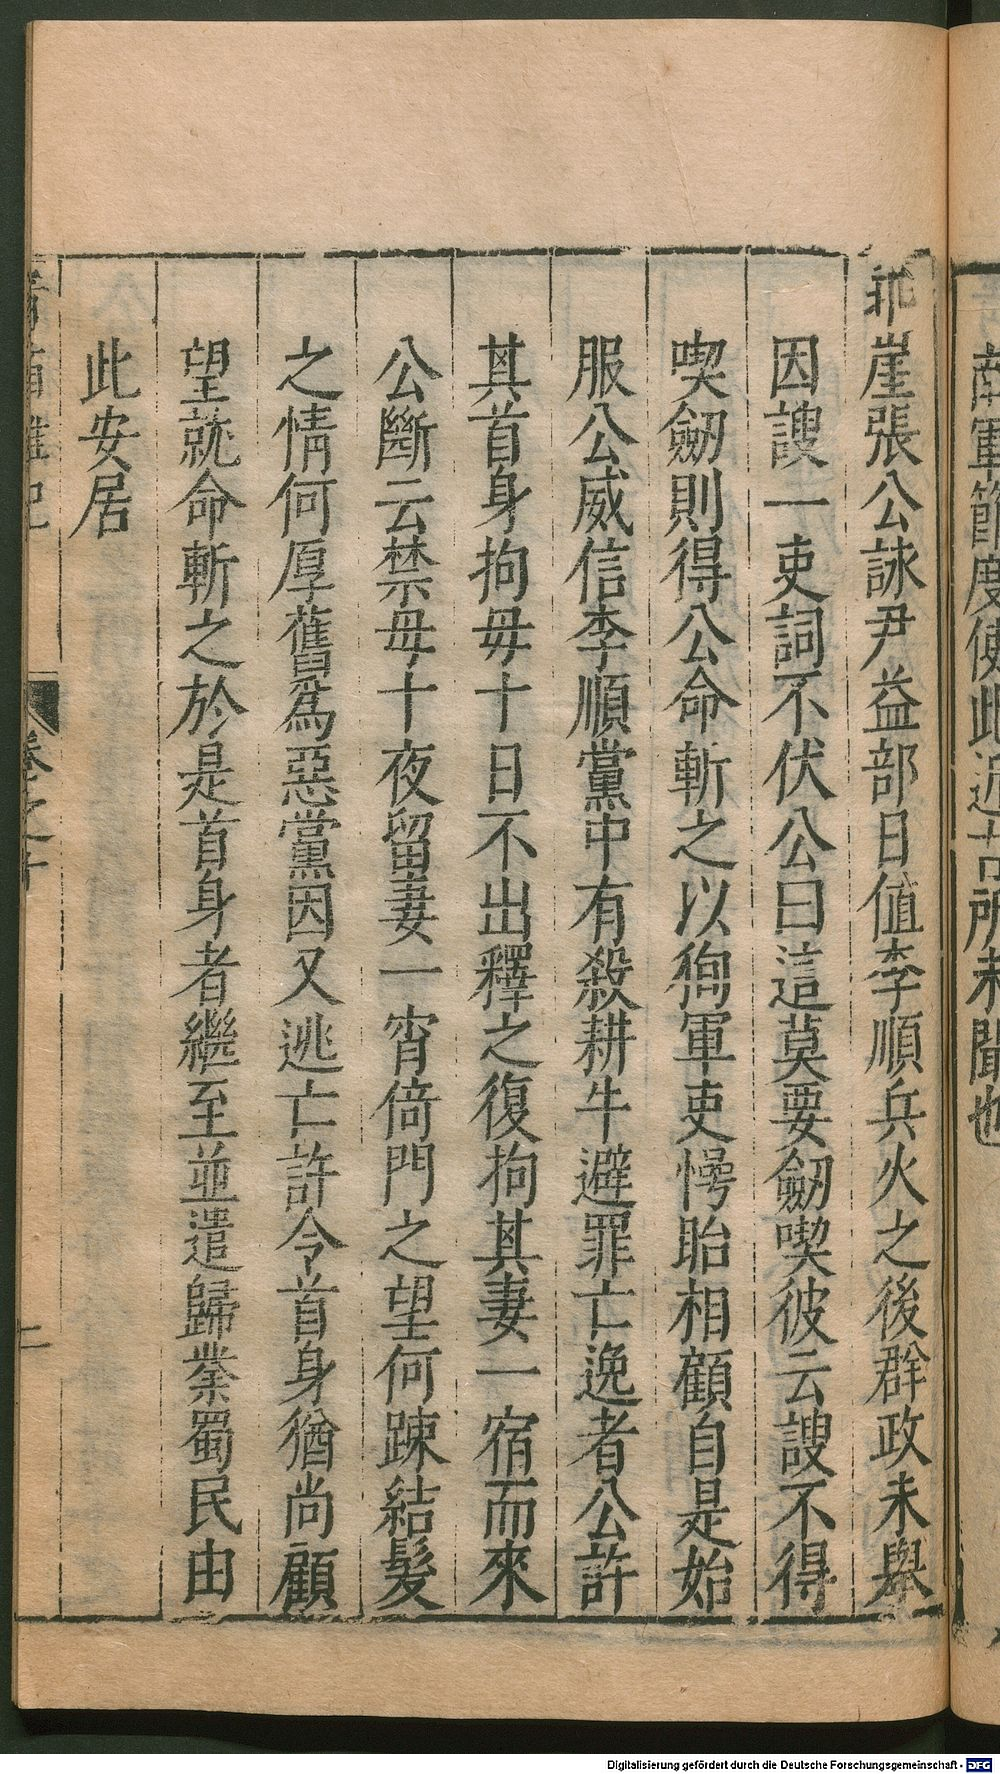 南軍節度使此近古所未聞也
乖崖張公詠尹益部日值李順兵火之後群政未舉
因謖一吏詞不伏公曰這莫要劒喫彼云謖不得
喫劒則得公命斬之以徇軍吏愕眙相顧自是始
服公威信李順黨中有殺耕牛避罪亡逸者公許
其首身拘母十日不出釋之復拘其妻一宿而來
公斷云禁母十夜留妻一宵倚門之望何踈結髮
之情何厚舊為惡黨因又逃亡許令首身猶尚顧
望就命斬之於是首身者繼至並遣歸業蜀民由
此安居
卷之十
二
Digitalisierung gefördert durch die Deutsche Forschungsgemeinschaft - DFG